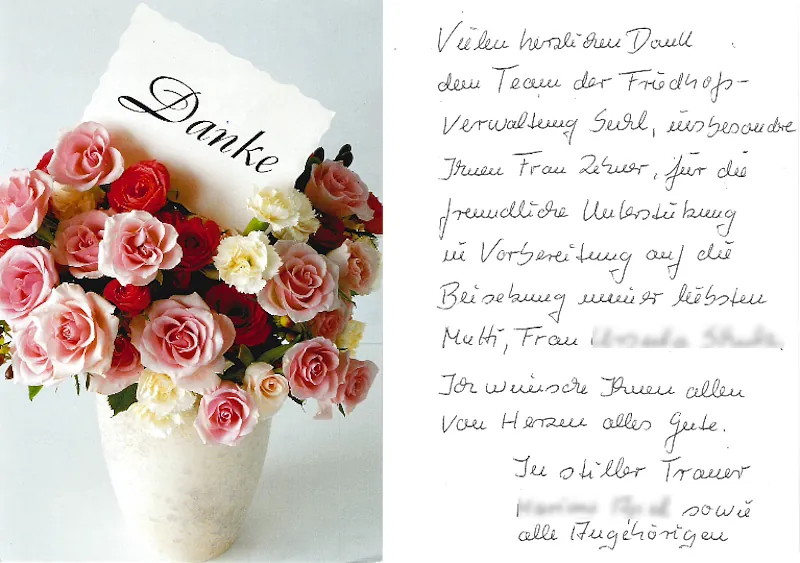 Danke
Vielen herzlichen Dank
dem Team der Friedhofs-
verwaltung Suhl, insbesondre
Ihnen Frau Zehner, für die
freundliche Unterstützung
in Vorbereitung auf die
Beisetzung meiner liebsten
Mutti, Frau
Ich wünsche Ihnen allen
von Herzen alles Gute.
In stiller Trauer
sowie
alle Angehörigen